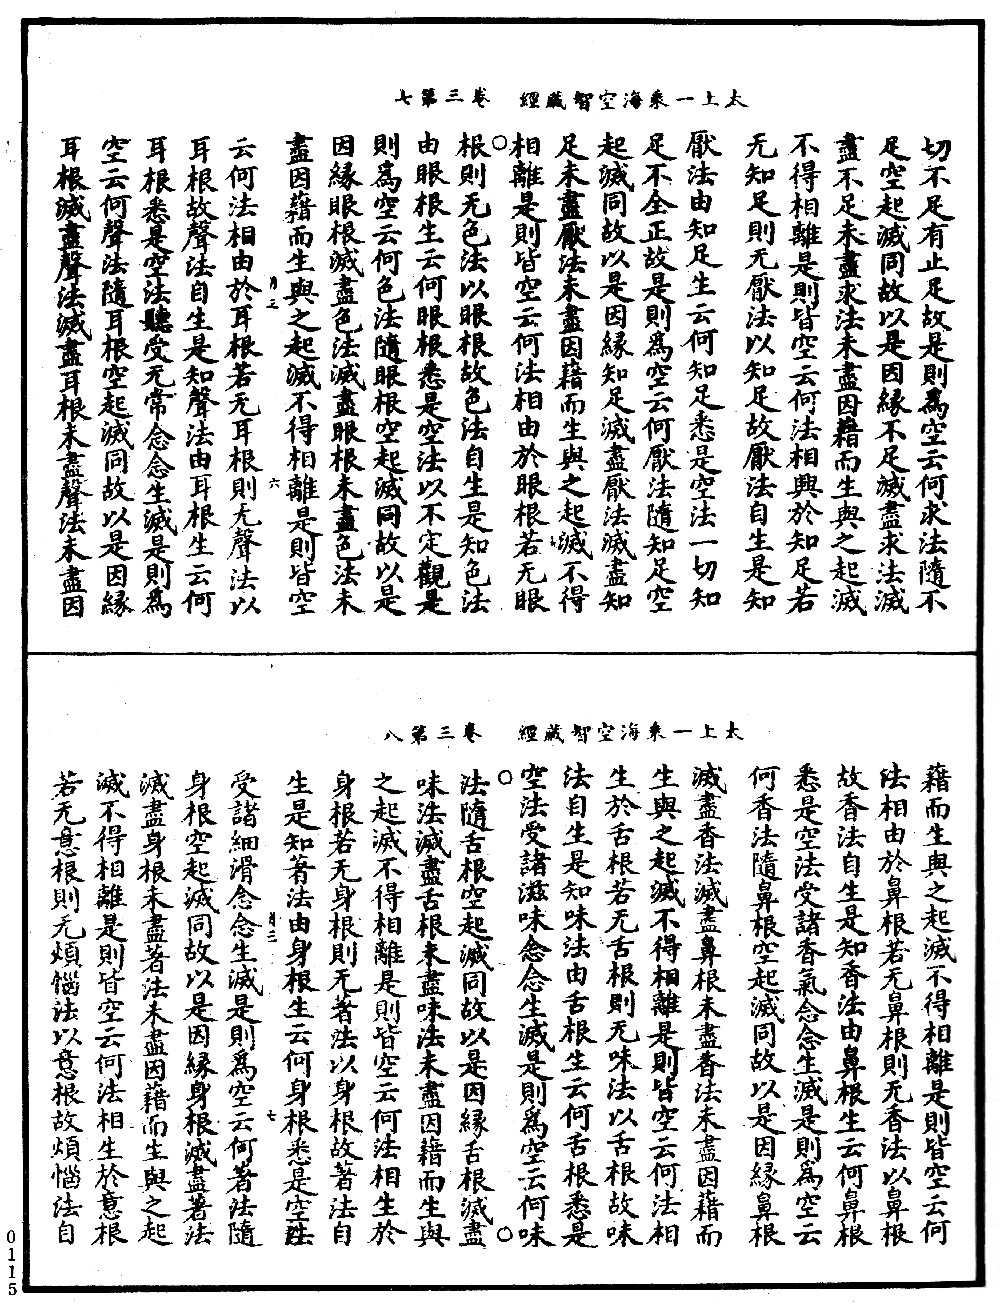 太上一乘海空智藏經　卷三第七
切不足有止足故是則為空云何求法隨不
足空起滅同故以是因緣不足滅盡求法滅
盡不足未盡求法未盡因藉而生與之起滅
不得相離是則皆空云何法相興於知足若
无知足則无厭法以知足故厭法自生是知
厭法由知足生云何知足悉是空法一切知
足不全正故是則為空云何厭法隨知足空
起滅同故以是因緣知足滅盡厭法滅盡知
足未盡厭法未盡因藉而生與之起滅不得
相離是則皆空云何法相由於眼根若无眼
○根則无色法以眼根故色法自生是知色法
由眼根生云何眼根悉是空法以不定觀是
則為空云何色法隨眼根空起滅同故以是
因緣眼根滅盡色法滅盡眼根未盡色法未
盡因藉而生與之起滅不得相離是則皆空
月二　六
云何法相由於耳根若无耳根則无聲法以
耳根故聲法自生是知聲法由耳根生云何
耳根悉是空法聽受无常念念生滅是則為
空云何聲法隨耳根空起滅同故以是因緣
耳根滅盡聲法滅盡耳根未盡聲法未盡因
太上一乘海空智藏經　卷三第八
藉而生與之起滅不得相離是則皆空云何
法相由於鼻根若无鼻根則无香法以鼻根
故香法自生是知香法由鼻根生云何鼻根
悉是空法受諸香氣念念生滅是則為空云
何香法隨鼻根空起滅同故以是因緣鼻根
滅盡香法滅盡鼻根未盡香法未盡因藉而
生與之起滅不得相離是則皆空云何法相
生於舌根若无舌根則无味法以舌根故味
法自生是知味法由舌根生云何舌根悉是
空法受諸滋味念念生滅是則為空云何味
○法隨舌根空起滅同故以是因緣舌根滅盡○
味法滅盡舌根未盡味法未盡因藉而生與
之起滅不得相離是則皆空云何法相生於
身根若无身根則无著法以身根故著法自
生是知著法由身根生云何身根悉是空法
月二　七
受諸細滑念念生滅是則為空云何著法隨
身根空起滅同故以是因緣身根滅盡著法
滅盡身根未盡著法未盡因藉而生與之起
滅不得相離是則皆空云何法相生於意根
若无意根則无煩惱法以意根故煩惱法自
0115